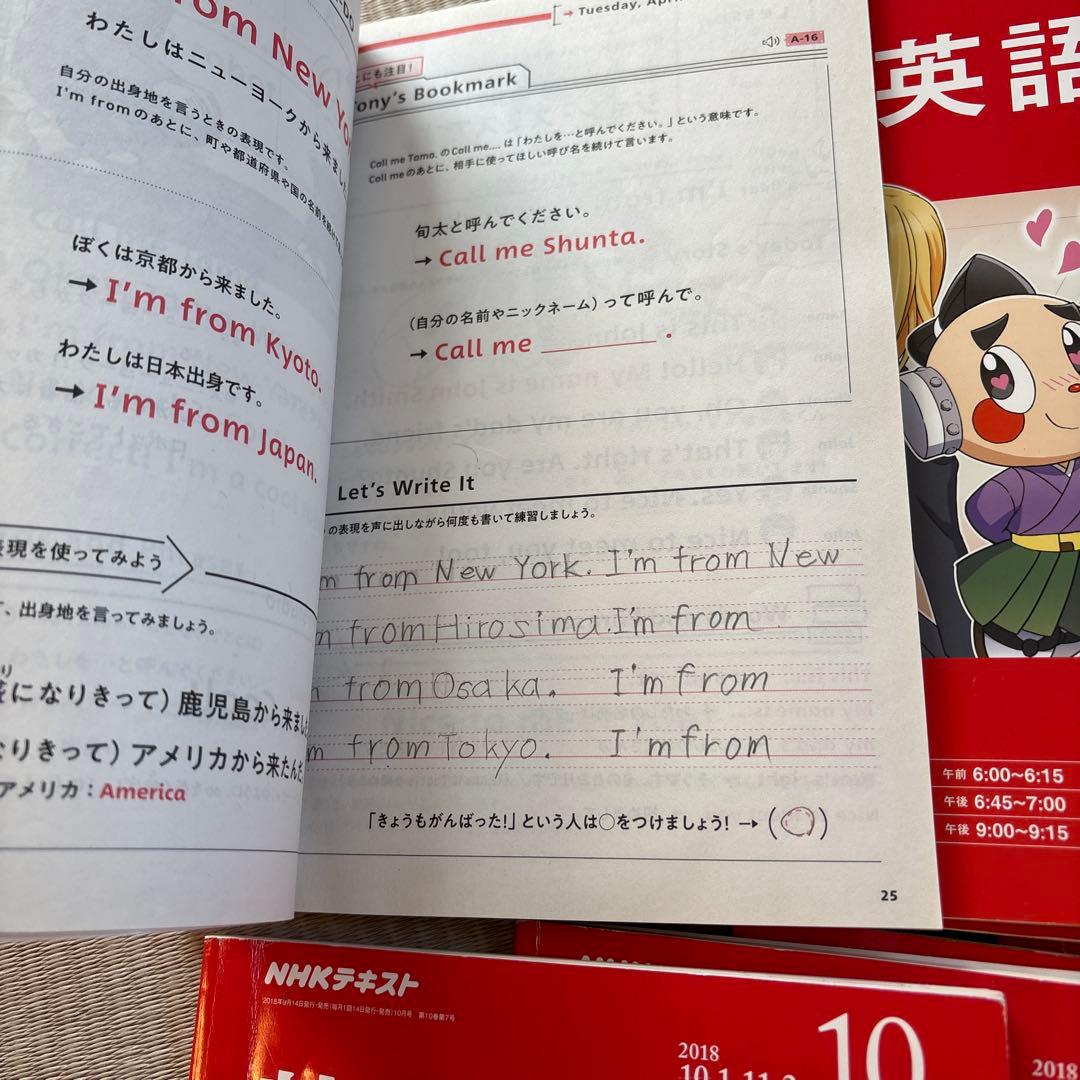 from New Yo
わたしはニューヨークから来まし
自分の出身地を言うときの表現です。
I'm fromのあとに、町や都道府県や国の名前を
ぼくは京都から来ました。
→ I'm from Kyoto.
わたしは日本出身です。
→ I'm from Japan.
表現を使ってみよう
、出身地を言ってみましょう。
になりきって）鹿児島から来まし
なりきって）アメリカから来たんだ
アメリカ：America
→ Tuesday, Apri
A-16
にも注目！
Tony's Bookmark
Call me Tama. のCall me.... は「わたしを…と呼んでください。」という意味です。
Call meのあとに、相手に使ってほしい呼び名を続けて言います。
旬太と呼んでください。
→ Call me Shunta.
（自分の名前やニックネーム）って呼んで。
→ Call me ________ .
Let's Write It
の表現を声に出しながら何度も書いて練習しましょう。
m from New York. I'm from New
m from Hirosima. I'm from
from Osaka. I'm from
m from Tokyo. I'm from
「きょうもがんばった！」という人は○をつけましょう！→（○）
25
英語
午前 6:00～6:15
午後 6:45～7:00
午後 9:00～9:15
NHKテキスト
2018年9月14日発行・発売（毎月1回14日発行・発売）10月号 第10巻第7号
2018
10
2018